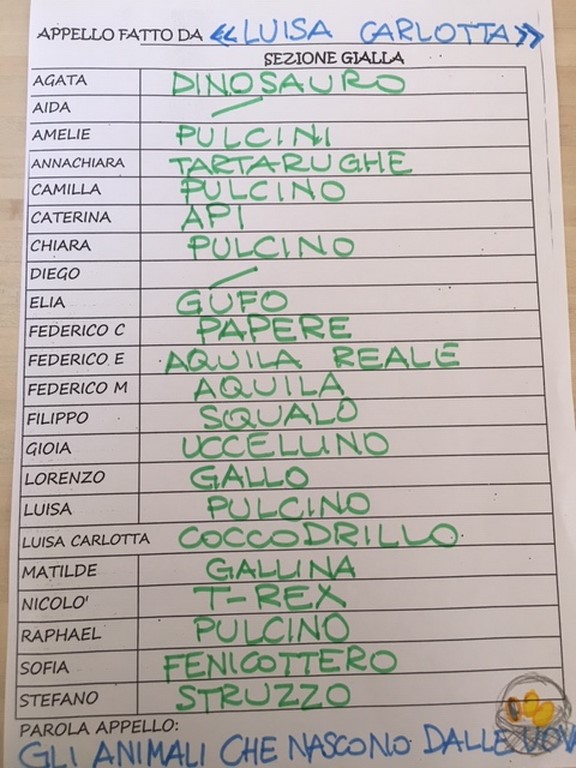 APPELLO FATTO DA «LUISA CARLOTTA»
SEZIONE GIALLA
AGATA DINOSAURO
AIDA /
AMELIE PULCINI
ANNACHIARA TARTARUGHE
CAMILLA PULCINO
CATERINA API
CHIARA PULCINO
DIEGO /
ELIA GUFO
FEDERICO C PAPERE
FEDERICO E AQUILA REALE
FEDERICO M AQUILA
FILIPPO SQUALO
GIOIA UCCELLINO
LORENZO GALLO
LUISA PULCINO
LUISA CARLOTTA COCCODRILLO
MATILDE GALLINA
NICOLO' T-REX
RAPHAEL PULCINO
SOFIA FENICOTTERO
STEFANO STRUZZO
PAROLA APPELLO:
GLI ANIMALI CHE NASCONO DALLE UOVA